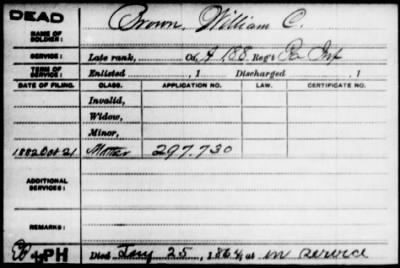 DEAD
NAME OF SOLDIER: Brown, William C.
SERVICE: Late rank, Co. A, 188 Reg't Pa Inf
TERM OF SERVICE: Enlisted , 1 Discharged , 1
DATE OF FILING. CLASS. APPLICATION NO. LAW. CERTIFICATE NO.
Invalid,
Widow,
Minor,
1882 Oct 21 Mother 297.730
ADDITIONAL SERVICES:
REMARKS:
PH Died Jany 25, 1864, at in service